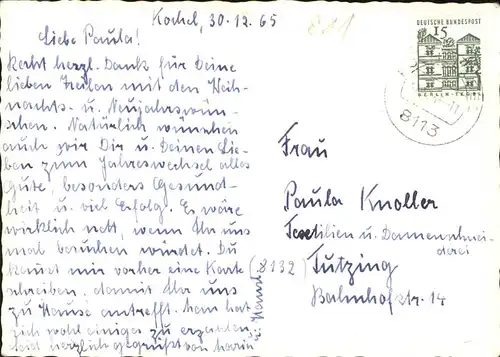 Kochel, 30.12.65
Liebe Paula!
Recht herzl. Dank für Deine
lieben Zeilen mit den Weih-
nachts- u. Neujahrswün-
schen. Natürlich wünschen
auch wir Dir u. Deinen Lie-
ben zum Jahreswechsel alles
Gute, besonders Gesund-
heit u. viel Erfolg. Es wäre
wirklich nett, wenn Ihr uns
mal besuchen würdet. Du
kannst mir vorher eine Karte
schreiben, damit Ihr uns
zu Hause antrefft. Man hat
sich wohl einiges zu erzählen.
Seid herzlich gegrüßt von
u. Hansl
DEUTSCHE BUNDESPOST
15
BERLIN-TEGEL
8113
Frau
Paula Knoller
Textilien u. Damenschnei-
derei
(8132) Tutzing
Bahnhofstr. 14